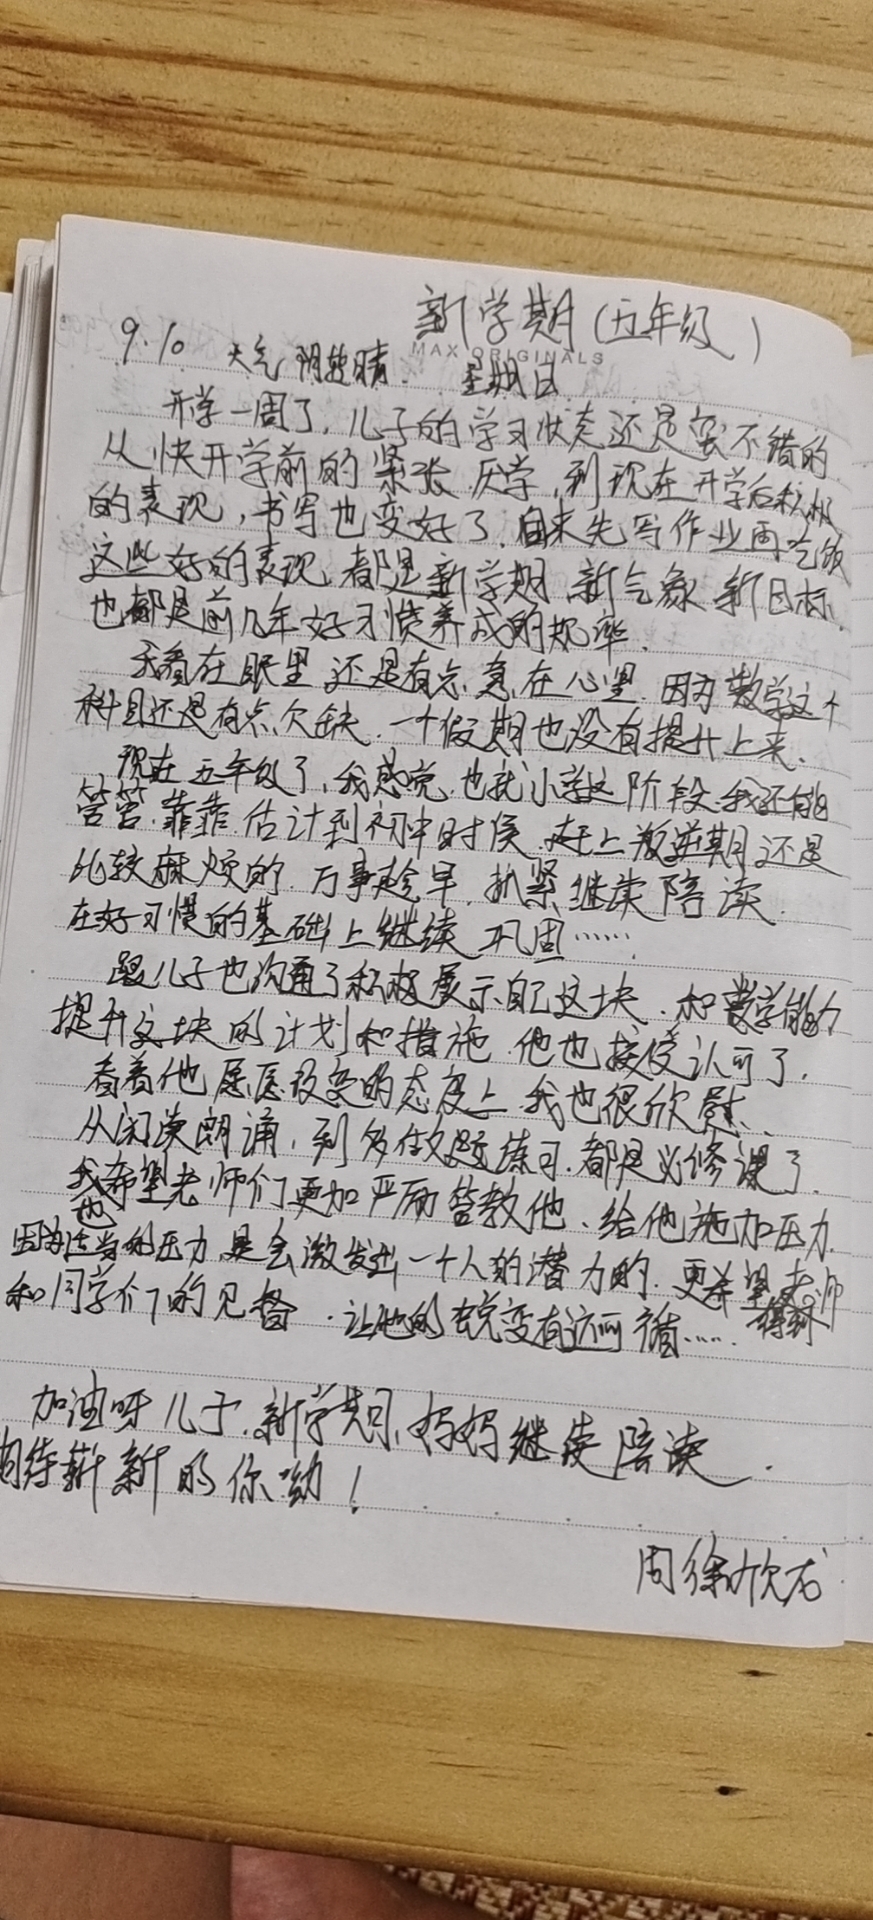 新学期(五年级)
MAX ORIGINALS
9.10 天气 阴转晴. 星期日
开学一周了,儿子的学习状态还是蛮不错的
从快开学前的紧张 厌学,到现在开学后积极
的表现,书写也变好了.回来先写作业再吃饭
这些好的表现 都是新学期 新气象 新目标.
也都是前几年好习惯养成的规律.
我看在眼里 还是有点 急在心里.因为数学这个
科目还是有点欠缺.一个假期也没有提升上来.
现在五年级了,我感觉.也就小学这阶段.我还能
管管.靠靠.估计到初中时候.赶上叛逆期还是
比较麻烦的.万事趁早.抓紧继续陪读.
在好习惯的基础上继续 巩固……
跟儿子也沟通了积极展示自己这块.和数学能力
提升这块的计划和措施.他也接受认可了.
看着他愿意改变的态度上.我也很欣慰.
从阅读朗诵,到多做题练习.都是必修课了.
我也希望老师们更加严厉管教他、给他施加压力.
因为适当的压力.是会激发出一个人的潜力的.更希望得到老师
和同学们的见督.让他的蜕变有迹可循……
加油呀儿子.新学期,妈妈继续陪读.
期待崭新的你呦!
周徐欣龙